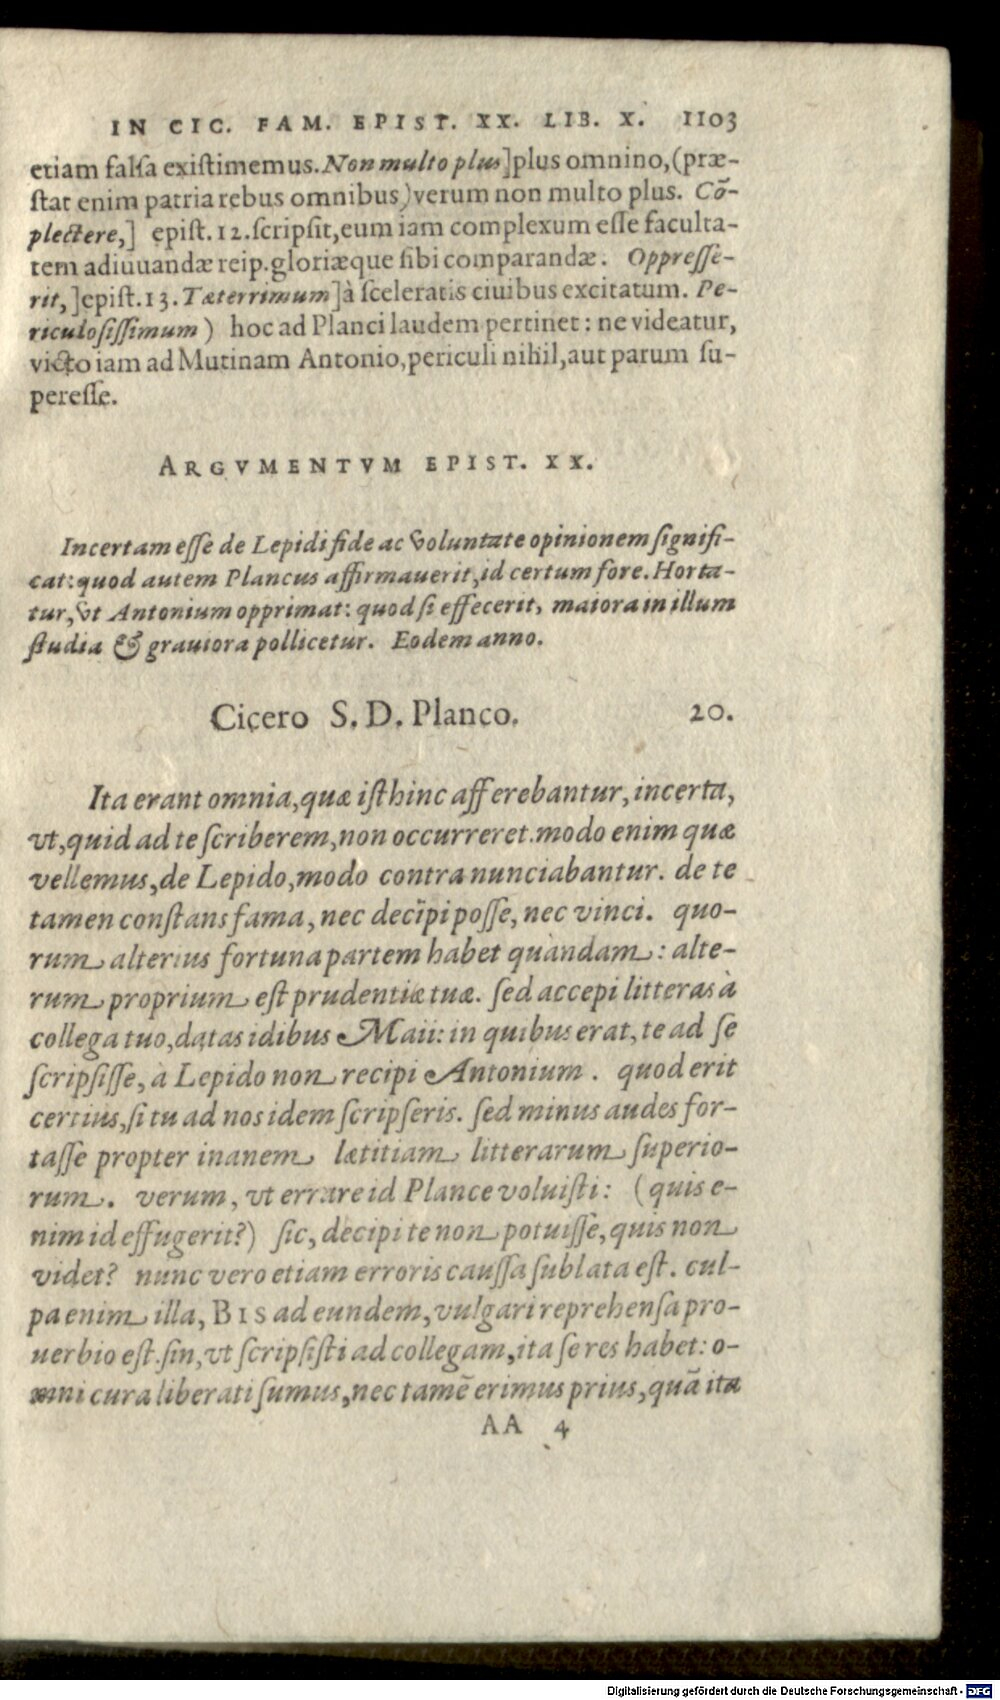 IN CIC. FAM. EPIST. XX. LIB. X. 1103
etiam falſa exiſtimemus. Non multo plus] plus omnino, (præ-
ſtat enim patria rebus omnibus) verum non multo plus. Cō-
plectere,] epiſt. 12. ſcripſit, eum iam complexum eſſe faculta-
tem adiuuandæ reip. gloriæque ſibi comparandæ. Oppreſſe-
rit,] epiſt. 13. Tæterrimum] à ſceleratis ciuibus excitatum. Pe-
riculoſiſſimum) hoc ad Planci laudem pertinet: ne videatur,
victo iam ad Mutinam Antonio, periculi nihil, aut parum ſu-
pereſſe.
ARGVMENTVM EPIST. XX.
Incertam eſſe de Lepidi fide ac voluntate opinionem ſignifi-
cat: quod autem Plancus affirmauerit, id certum fore. Horta-
tur, vt Antonium opprimat: quod ſi effecerit, maiora in illum
ſtudia & grauiora pollicetur. Eodem anno.
Cicero S. D. Planco. 20.
Ita erant omnia, quæ iſthinc afferebantur, incerta,
vt, quid ad te ſcriberem, non occurreret. modo enim quæ
vellemus, de Lepido, modo contra nunciabantur. de te
tamen conſtans fama, nec decipi poſſe, nec vinci. quo-
rum alterius fortuna partem habet quandam: alte-
rum proprium eſt prudentiæ tuæ. ſed accepi litteras à
collega tuo, datas idibus Maii: in quibus erat, te ad ſe
ſcripſiſſe, à Lepido non recipi Antonium. quod erit
certius, ſi tu ad nos idem ſcripſeris. ſed minus audes for-
taſſe propter inanem lætitiam litterarum ſuperio-
rum. verum, vt errare id Plance voluiſti: (quis e-
nim id effugerit?) ſic, decipi te non potuiſſe, quis non
videt? nunc vero etiam erroris cauſſa ſublata eſt. cul-
pa enim illa, BIS ad eundem, vulgari reprehenſa pro-
uerbio eſt. ſin, vt ſcripſiſti ad collegam, ita ſe res habet: o-
mni cura liberati ſumus, nec tamē erimus prius, quā ita
AA 4
Digitalisierung gefördert durch die Deutsche Forschungsgemeinschaft - DFG